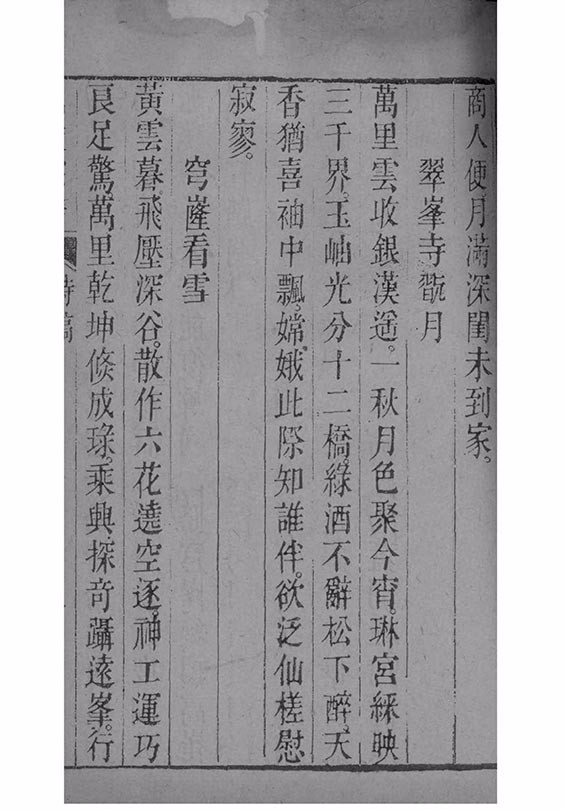 商人便月滿深閨未到家。
翠峯寺翫月
萬里雲收銀漢遥。一秋月色聚今宵。琳宮綵映
三千界。玉岫光分十二橋。綠酒不辭松下醉。天
香猶喜袖中飄。嫦娥此際知誰伴。欲泛仙槎慰
寂寥。
穹窿看雪
黃雲暮飛壓深谷。散作六花遶空逐。神工運巧
良足驚萬里乾坤倐成琭。乘興探奇躡遠峯。行
詩稿